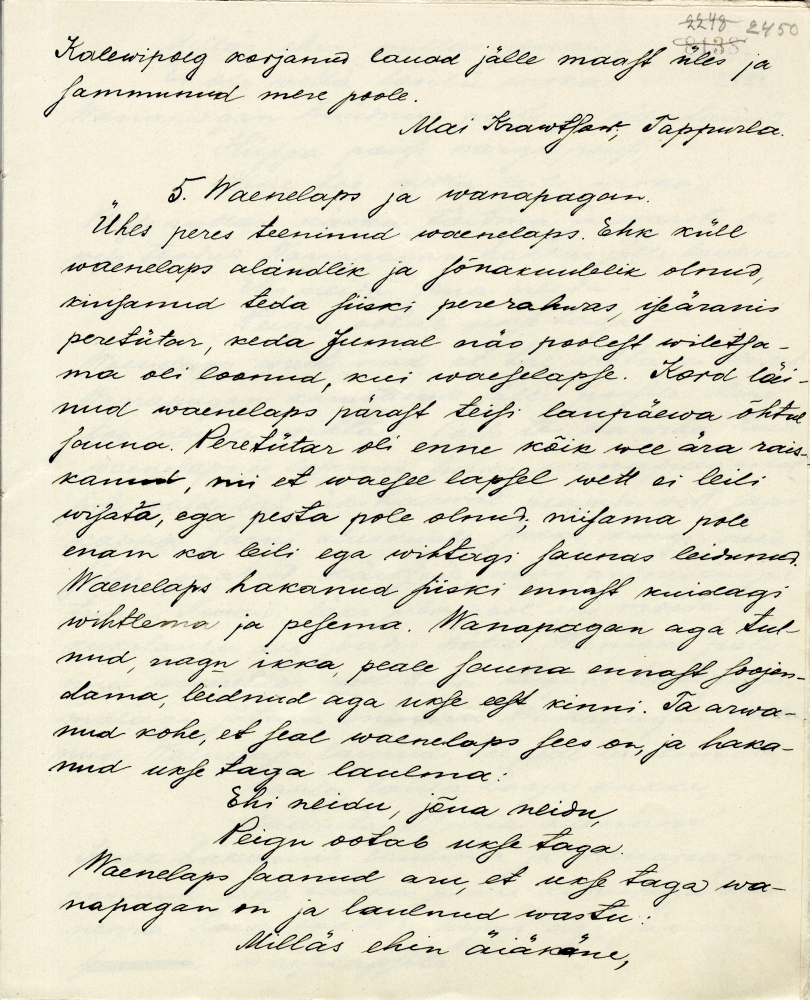 2248 2450
8138
Kalewipoeg korjanud lauad jälle maast üles ja
sammunud mere poole.
Mai Krawtsow, Tappurla.
5. Waenelaps ja wanapagan.
Ühes peres teeninud waenelaps. Ehk küll
waenelaps alandlik ja sõnakuulelik olnud,
kiusanud teda siiski pererahwas, iseäranis
peretütar, keda Jumal näo poolest wiletsa-
ma oli loonud, kui waeselapse. Kord läi-
nud waenelaps pärast teisi laupäewa õhtul
sauna. Peretütar oli enne kõik wee ära rais-
kanud, nii et waesee lapsel wett ei leili
wisata, ega pesta pole olnud; niisama pole
enam ka leili ega wihtagi saunas leidunud.
Waenelaps hakanud siiski ennast kuidagi
wihtlema ja pesema. Wanapagan aga tul-
nud, nagu ikka, peale sauna ennast soojen-
dama, leidnud aga ukse eest kinni. Ta arwa-
nud kohe, et seal waenelaps sees on, ja haka-
nud ukse taga laulma:
Ehi neidu, jõua neidu,
Peigu ootab ukse taga.
Waenelaps saanud aru, et ukse taga wa-
napagan on ja laulnud wastu:
Milläs ehin äiäkäne,